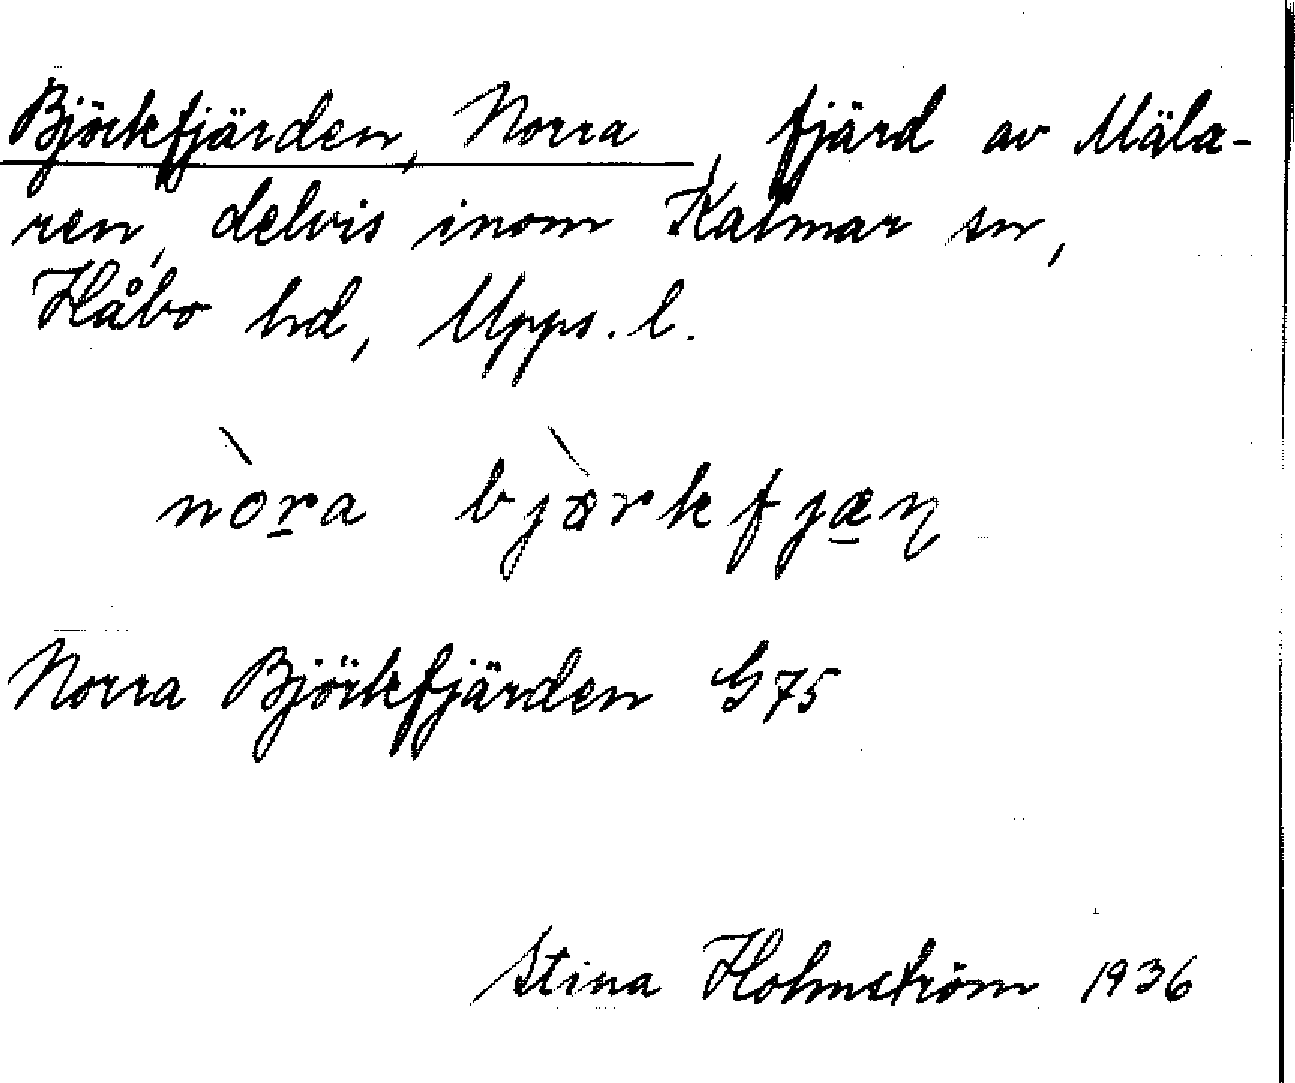 Björkfjärden, Norra, fjärd av Mäla-
ren, delvis inom Kalmar sn,
Håbo hd, Upps. l.
nòr̲a bjærkfjæ̲ɳ
Norra Björkfjärden G75
Stina Holmström 1936